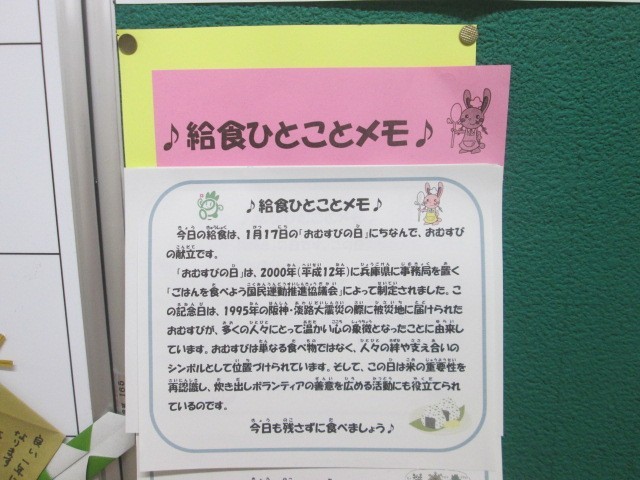 ♪給食ひとことメモ♪
♪給食ひとことメモ♪
今日の給食は、1月17日の「おむすびの日」にちなんで、おむすび
の献立です。
「おむすびの日」は、2000年(平成12年)に兵庫県に事務局を置く
「ごはんを食べよう国民運動推進協議会」によって制定されました。こ
の記念日は、1995年の阪神・淡路大震災の際に被災地に届けられた
おむすびが、多くの人々にとって温かい心の象徴となったことに由来し
ています。おむすびは単なる食べ物ではなく、人々の絆や支え合いの
シンボルとして位置づけられています。そして、この日は米の重要性を
再認識し、炊き出しボランティアの善意を広める活動にも役立てられ
ているのです。
今日も残さずに食べましょう♪